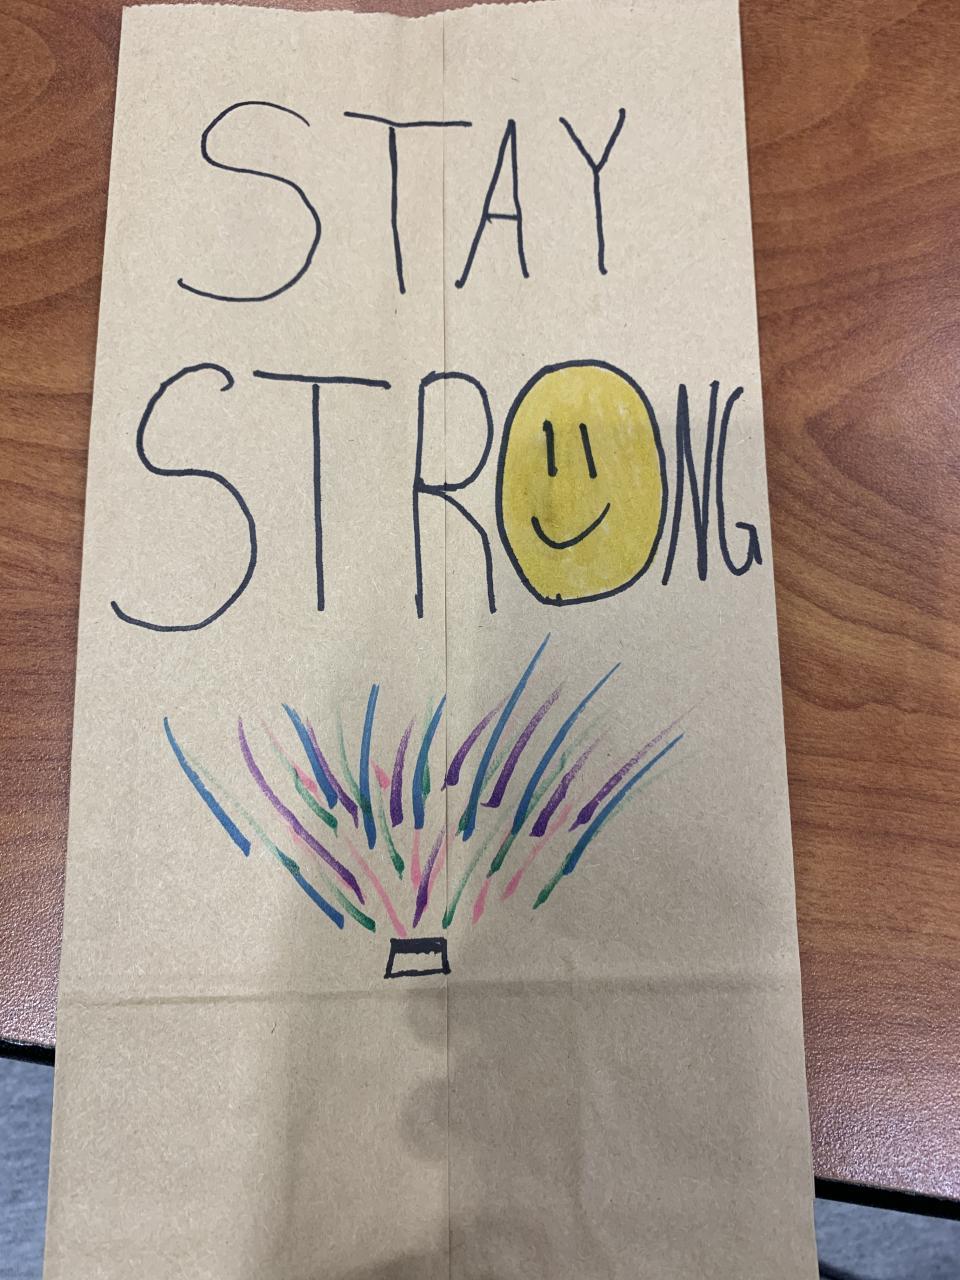 STAY
STRONG